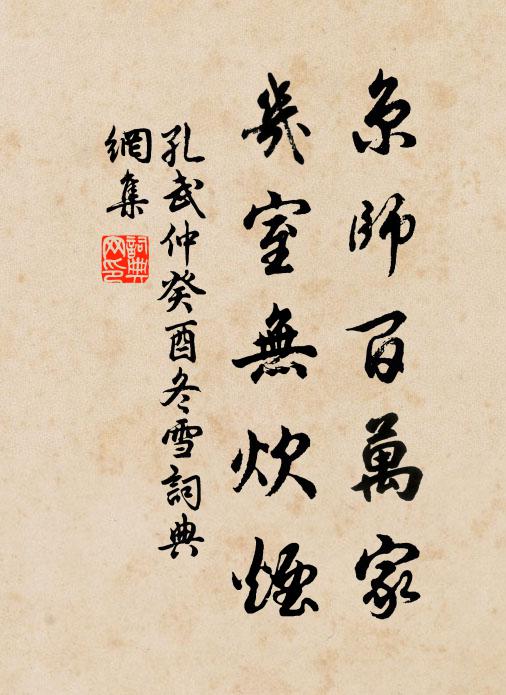 京師百萬家
幾室無炊煙
孔武仲癸酉冬雪詞典
網集
詞典
网印